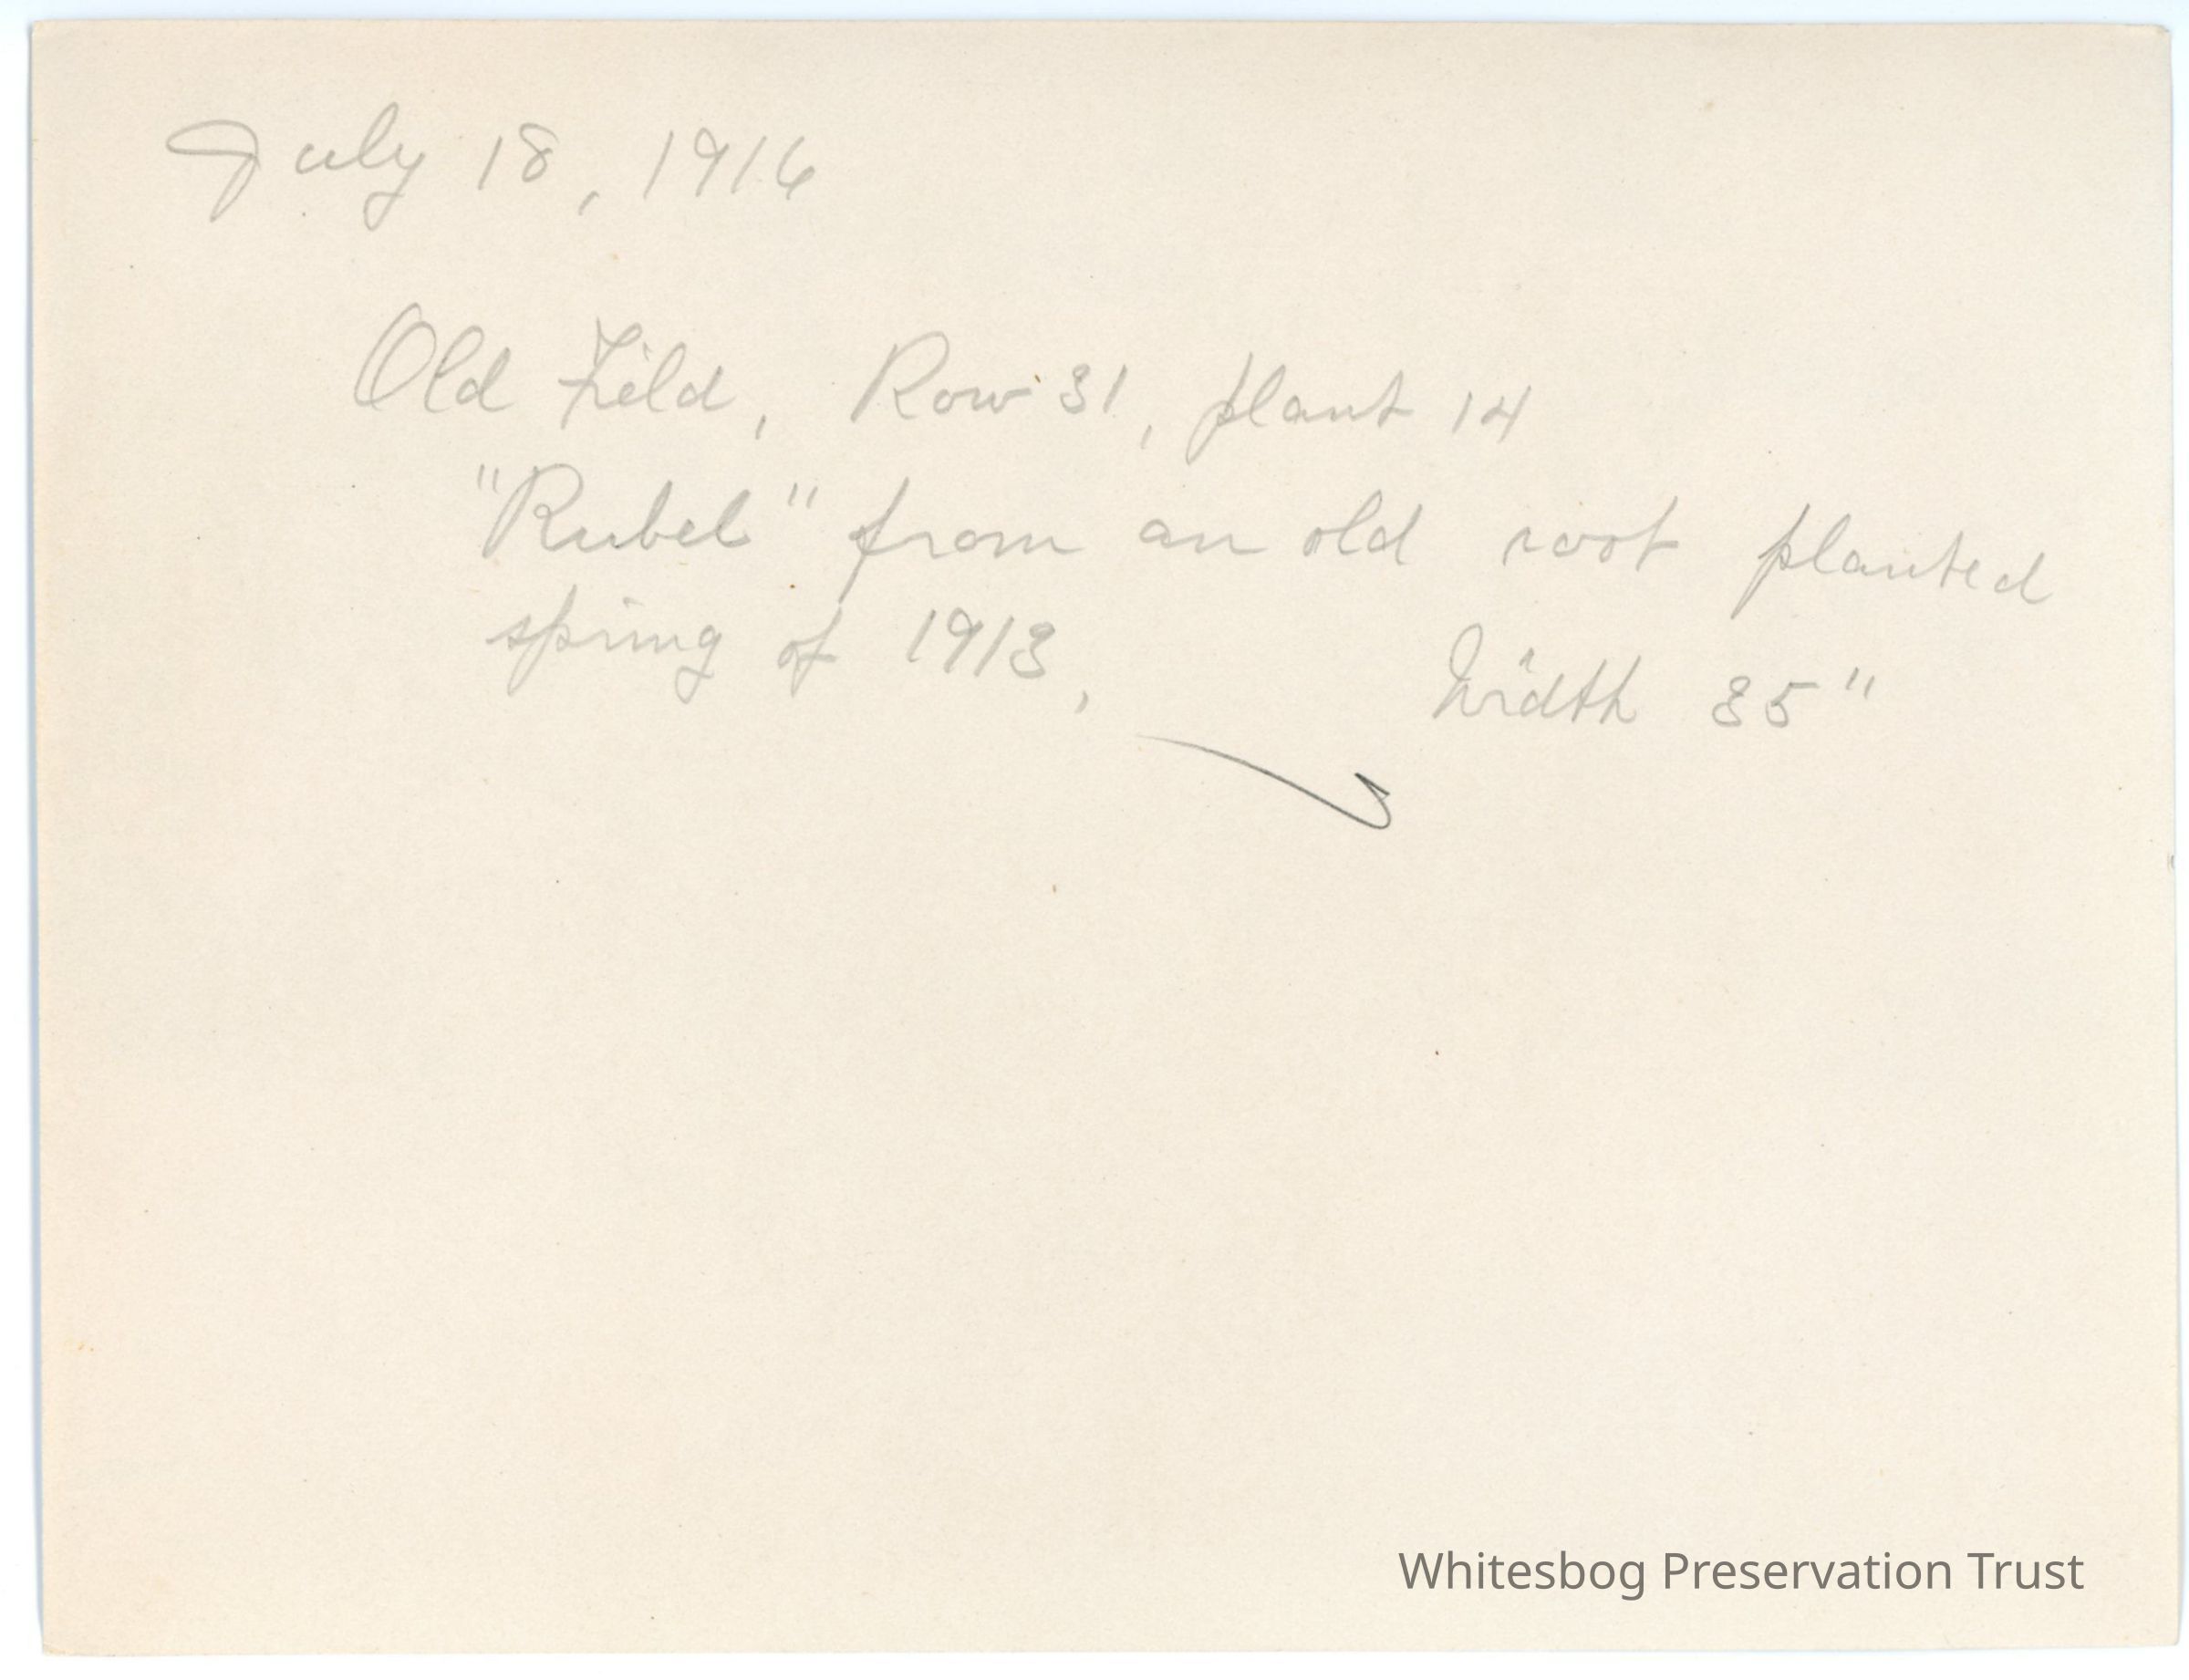 July 18, 1916
Old Field, Row 31, plant 14
"Rubel" from an old root planted
spring of 1913,
Width 35"
Whitesbog Preservation Trust